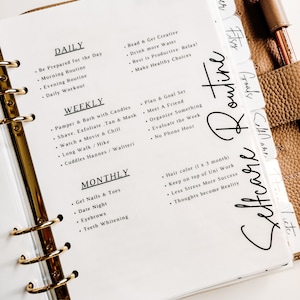 DAILY
· Be Prepared for the Day
· Morning Routine
· Evening Routine
· Daily Workout
· Read & Get Creative
· Drink more Water
· Rest is Productive. Relax!
· Make Healthy Choices
WEEKLY
· Pamper & Bath with Candles
· Shave, Exfoliate, Tan & Mask
· Watch a Movie & Chill
· Long Walk / Hike
· Cuddles Hannes / Walteri
· Plan & Goal Set
· Meet a Friend
· Organize Something
· Evaluate the Week
· No Phone Hour
MONTHLY
· Gel Nails & Toes
· Date Night
· Eyebrows
· Teeth Whitening
· Hair color (1 x 3 month)
· Keep on top of Uni Work
· Less Stress More Success
· Thoughts become Reality
Selfcare Routine